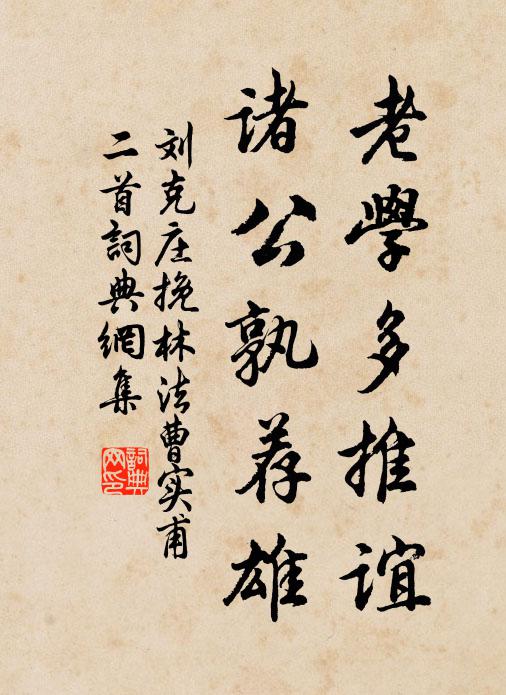 老學多推誼
諸公孰荐雄
刘克庄挽林法曹实甫
二首詞典網集
詞典网印